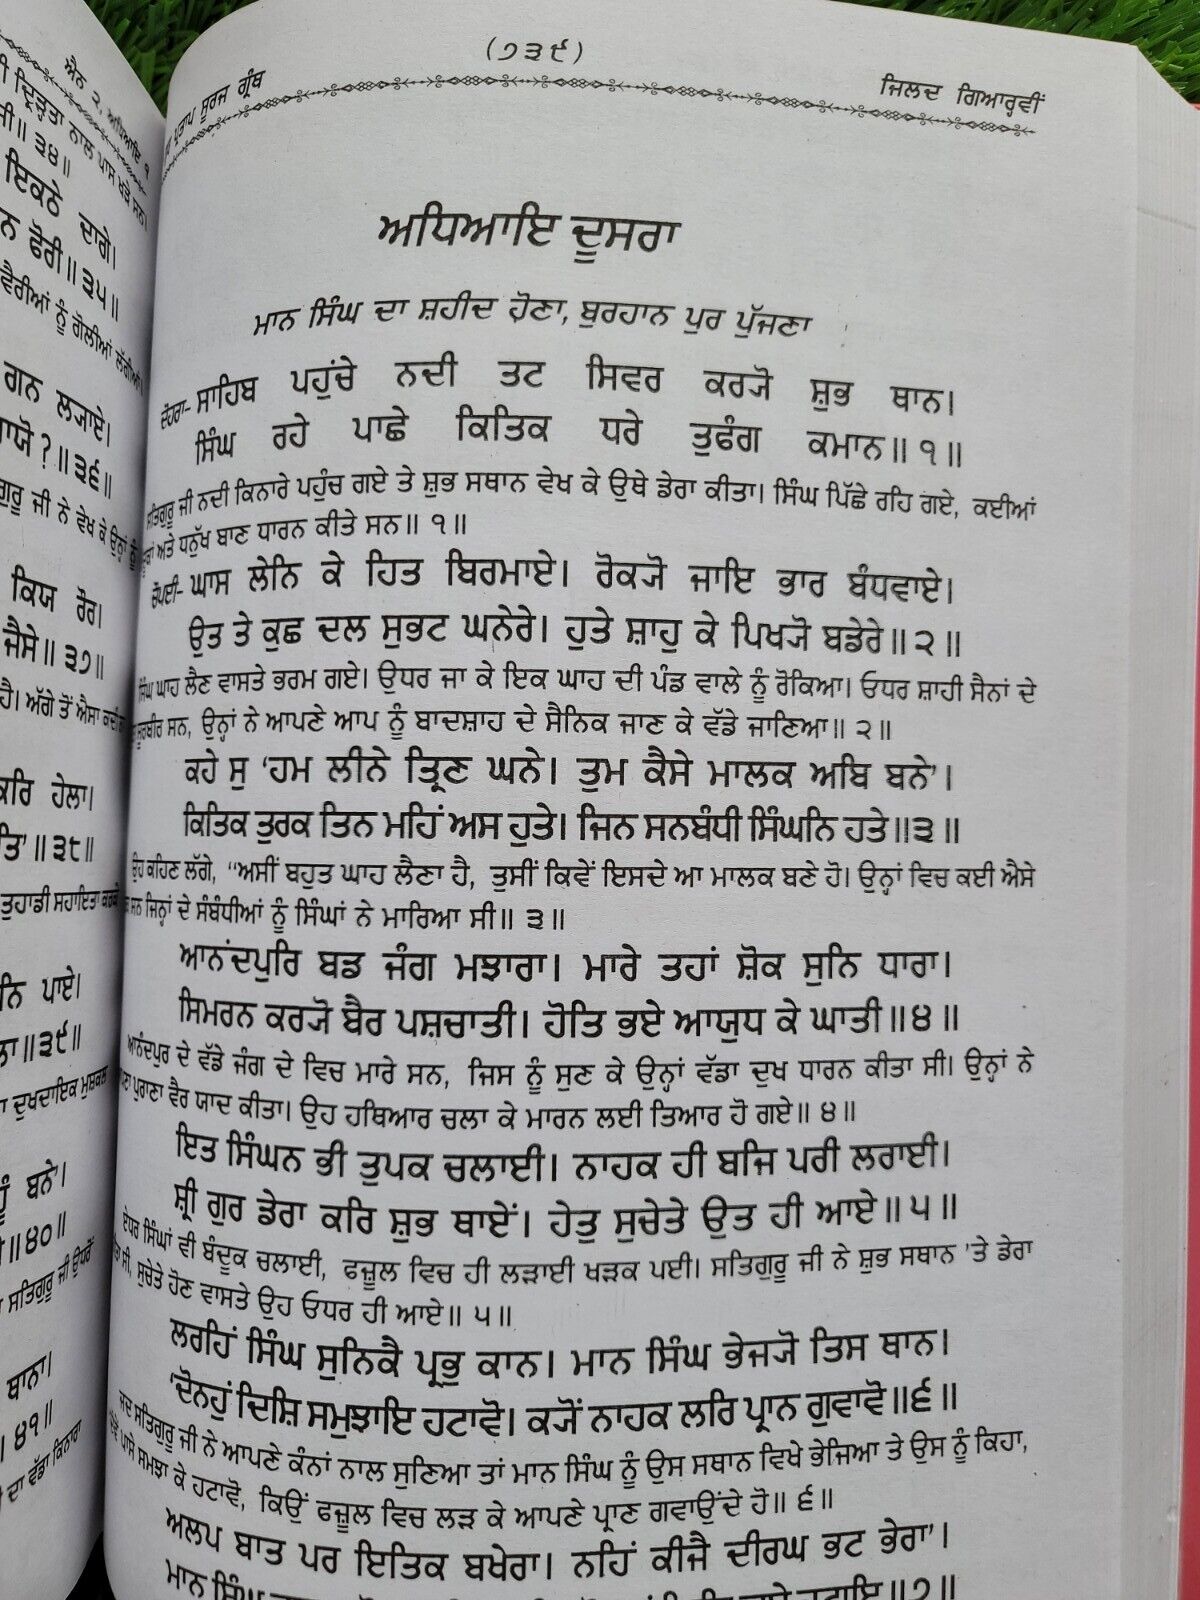 ਐਨ ੨, ਅਧਿਆਇ ੧
ਦ੍ਰਿੜ੍ਹਤਾ ਨਾਲ ਪਾਸ ਖੜੇ ਸਨ।
॥ ੩੪॥
ਇਕਠੇ ਦਾਗੇ।
ਨ ਫੋਰੀ॥ ੩੫॥
ਵੈਰੀਆਂ ਨੂੰ ਗੋਲੀਆਂ ਲੱਗੀਆਂ
ਗਨ ਲ੍ਯਾਏ।
? ॥ ੩੬॥
ਗੁਰੂ ਜੀ ਨੇ ਵੇਖ ਕੇ ਉਨ੍ਹਾਂ ਨੂੰ
ਕਿਯ ਰੌਰ।
ਜੈਸੇ॥ ੩੭॥
ਹੈ। ਅੱਗੇ ਤੋਂ ਐਸਾ ਕਦੀ
ਕਰਿ ਹੇਲਾ।
॥ ੩੮॥
ਤੁਹਾਡੀ ਸਹਾਇਤਾ ਕਰਕੇ
ਨਿ ਪਾਏ।
॥੩੯॥
ਦੁਖਦਾਇਕ ਮੁਸ਼ਕਲ
ਬਨੇ'।
॥੪੦॥
ਸਤਿਗੁਰੂ ਜੀ ਉਧਰੋਂ
ਥਾਨਾ।
। ੪੧॥
ਦਾ ਵੱਡਾ ਕਿਨਾਰਾ
ਪ੍ਰਤਾਪ ਸੂਰਜ ਗ੍ਰੰਥ (੭੩੯) ਜਿਲਦ ਗਿਆਰ੍ਹਵੀਂ
ਅਧਿਆਇ ਦੂਸਰਾ
ਮਾਨ ਸਿੰਘ ਦਾ ਸ਼ਹੀਦ ਹੋਣਾ, ਬੁਰਹਾਨ ਪੁਰ ਪੁੱਜਣਾ
ਦੋਹਰਾ- ਸਾਹਿਬ ਪਹੁਂਚੇ ਨਦੀ ਤਟ ਸਿਵਰ ਕਰ੍ਯੋ ਸ਼ੁਭ ਥਾਨ।
ਸਿੰਘ ਰਹੇ ਪਾਛੇ ਕਿਤਿਕ ਧਰੇ ਤੁਫੰਗ ਕਮਾਨ॥ ੧॥
ਸਤਿਗੁਰੂ ਜੀ ਨਦੀ ਕਿਨਾਰੇ ਪਹੁੰਚ ਗਏ ਤੇ ਸ਼ੁਭ ਸਥਾਨ ਵੇਖ ਕੇ ਉਥੇ ਡੇਰਾ ਕੀਤਾ। ਸਿੰਘ ਪਿੱਛੇ ਰਹਿ ਗਏ, ਕਈਆਂ
ਅਤੇ ਧਨੁੱਖ ਬਾਣ ਧਾਰਨ ਕੀਤੇ ਸਨ॥ ੧॥
ਚੌਪਈ- ਘਾਸ ਲੇਨਿ ਕੇ ਹਿਤ ਬਿਰਮਾਏ। ਰੋਕ੍ਯੋ ਜਾਇ ਭਾਰ ਬੰਧਵਾਏ।
ਉਤ ਤੇ ਕੁਛ ਦਲ ਸੁਭਟ ਘਨੇਰੇ। ਹੁਤੇ ਸ਼ਾਹੁ ਕੇ ਪਿਖ੍ਯੋ ਬਡੇਰੇ॥ ੨॥
ਸਿੰਘ ਘਾਹ ਲੈਣ ਵਾਸਤੇ ਭਰਮ ਗਏ। ਉਧਰ ਜਾ ਕੇ ਇਕ ਘਾਹ ਦੀ ਪੰਡ ਵਾਲੇ ਨੂੰ ਰੋਕਿਆ। ਓਧਰ ਸ਼ਾਹੀ ਸੈਨਾਂ ਦੇ
ਸੂਰਬੀਰ ਸਨ, ਉਨ੍ਹਾਂ ਨੇ ਆਪਣੇ ਆਪ ਨੂੰ ਬਾਦਸ਼ਾਹ ਦੇ ਸੈਨਿਕ ਜਾਣ ਕੇ ਵੱਡੇ ਜਾਣਿਆ॥ ੨॥
ਕਹੇ ਸੁ 'ਹਮ ਲੀਨੇ ਤ੍ਰਿਣ ਘਨੇ। ਤੁਮ ਕੈਸੇ ਮਾਲਕ ਅਬਿ ਬਨੇ'।
ਕਿਤਿਕ ਤੁਰਕ ਤਿਨ ਮਹਿਂ ਅਸ ਹੁਤੇ। ਜਿਨ ਸਨਬੰਧੀ ਸਿੰਘਨਿ ਹਤੇ॥੩॥
ਉਹ ਕਹਿਣ ਲੱਗੇ, “ਅਸੀਂ ਬਹੁਤ ਘਾਹ ਲੈਣਾ ਹੈ, ਤੁਸੀਂ ਕਿਵੇਂ ਇਸਦੇ ਆ ਮਾਲਕ ਬਣੇ ਹੋ। ਉਨ੍ਹਾਂ ਵਿਚ ਕਈ ਐਸੇ
ਸਨ ਜਿਨ੍ਹਾਂ ਦੇ ਸੰਬੰਧੀਆਂ ਨੂੰ ਸਿੰਘਾਂ ਨੇ ਮਾਰਿਆ ਸੀ॥ ੩॥
ਆਨਂਦਪੁਰਿ ਬਡ ਜੰਗ ਮਝਾਰਾ। ਮਾਰੇ ਤਹਾਂ ਸ਼ੋਕ ਸੁਨਿ ਧਾਰਾ।
ਸਿਮਰਨ ਕਰ੍ਯੋ ਬੈਰ ਪਸ਼ਚਾਤੀ। ਹੋਤਿ ਭਏ ਆਯੁਧ ਕੇ ਘਾਤੀ॥੪॥
ਆਨੰਦਪੁਰ ਦੇ ਵੱਡੇ ਜੰਗ ਦੇ ਵਿਚ ਮਾਰੇ ਸਨ, ਜਿਸ ਨੂੰ ਸੁਣ ਕੇ ਉਨ੍ਹਾਂ ਵੱਡਾ ਦੁਖ ਧਾਰਨ ਕੀਤਾ ਸੀ। ਉਨ੍ਹਾਂ ਨੇ
ਪੁਰਾਣਾ ਵੈਰ ਯਾਦ ਕੀਤਾ। ਉਹ ਹਥਿਆਰ ਚਲਾ ਕੇ ਮਾਰਨ ਲਈ ਤਿਆਰ ਹੋ ਗਏ॥ ੪॥
ਇਤ ਸਿੰਘਨ ਭੀ ਤੁਪਕ ਚਲਾਈ। ਨਾਹਕ ਹੀ ਬਜਿ ਪਰੀ ਲਰਾਈ।
ਸ਼੍ਰੀ ਗੁਰ ਡੇਰਾ ਕਰਿ ਸ਼ੁਭ ਥਾਏਂ। ਹੇਤੁ ਸੁਚੇਤੇ ਉਤ ਹੀ ਆਏ॥ ੫॥
ਏਧਰ ਸਿੰਘਾਂ ਵੀ ਬੰਦੂਕ ਚਲਾਈ, ਫਜ਼ੂਲ ਵਿਚ ਹੀ ਲੜਾਈ ਖੜਕ ਪਈ। ਸਤਿਗੁਰੂ ਜੀ ਨੇ ਸ਼ੁਭ ਸਥਾਨ 'ਤੇ ਡੇਰਾ
ਸੀ, ਸੁਚੇਤੇ ਹੋਣ ਵਾਸਤੇ ਉਹ ਓਧਰ ਹੀ ਆਏ॥ ੫॥
ਲਰਹਿਂ ਸਿੰਘ ਸੁਨਿਕੈ ਪ੍ਰਭੁ ਕਾਨ। ਮਾਨ ਸਿੰਘ ਭੇਜ੍ਯੋ ਤਿਸ ਥਾਨ।
'ਦੋਨਹੁਂ ਦਿਸ਼ਿ ਸਮੁਝਾਇ ਹਟਾਵੋ। ਕ੍ਯੋਂ ਨਾਹਕ ਲਰਿ ਪ੍ਰਾਨ ਗੁਵਾਵੋ॥੬॥
ਜਦ ਸਤਿਗੁਰੂ ਜੀ ਨੇ ਆਪਣੇ ਕੰਨਾਂ ਨਾਲ ਸੁਣਿਆ ਤਾਂ ਮਾਨ ਸਿੰਘ ਨੂੰ ਉਸ ਸਥਾਨ ਵਿਖੇ ਭੇਜਿਆ ਤੇ ਉਸ ਨੂੰ ਕਿਹਾ,
ਪਾਸੇ ਸਮਝਾ ਕੇ ਹਟਾਵੋ, ਕਿਉਂ ਫਜ਼ੂਲ ਵਿਚ ਲੜ ਕੇ ਆਪਣੇ ਪ੍ਰਾਣ ਗਵਾਉਂਦੇ ਹੋ॥ ੬॥
ਅਲਪ ਬਾਤ ਪਰ ਇਤਿਕ ਬਖੇਰਾ। ਨਹਿਂ ਕੀਜੈ ਦੀਰਘ ਭਟ ਭੇਰਾ'।
ਮਾਨ ਸਿੰਘ ਹਟਾਇ॥੭॥